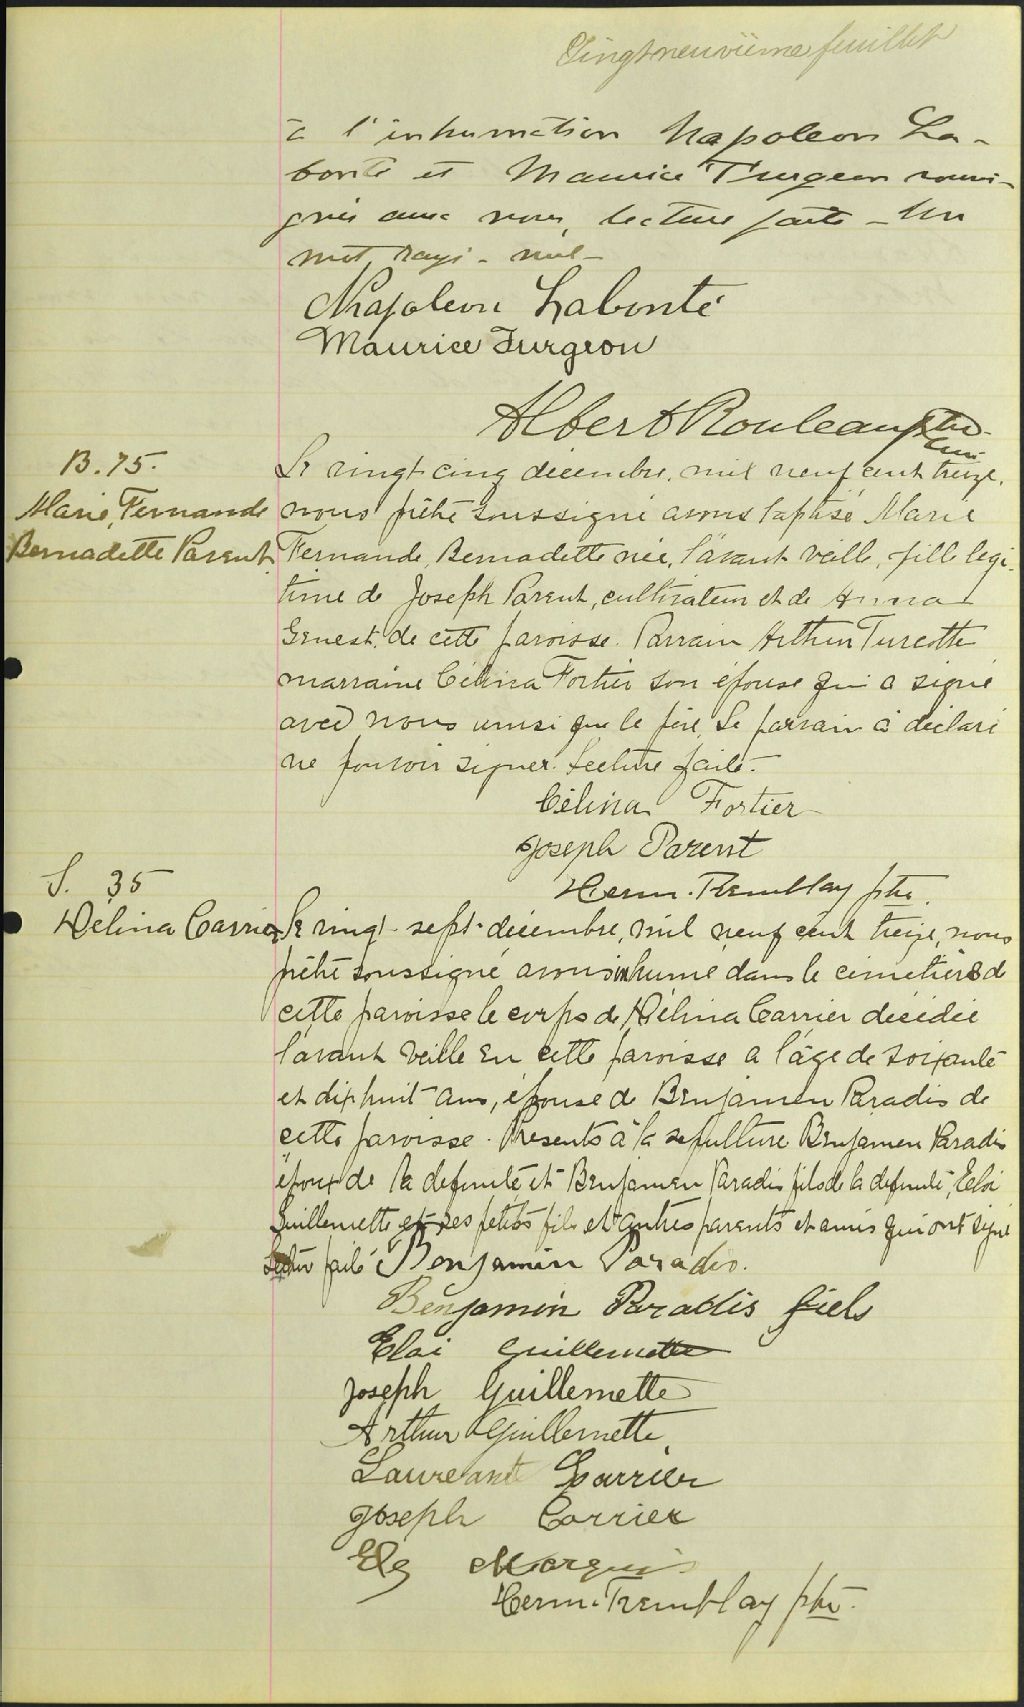 Vingt neuvième feuillet
à l'inhumation Napoleon La-
bonté et Maurice Turgeon soussi-
gnés avec nous, lecture faite - Un
mot rayé - nul -
Napoleon Labonté
Maurice Turgeon
Albert Rouleau, Ptre
Curé
B. 75.
Marie, Fernande
Bernadette Parent.
Le vingt-cinq décembre, mil neuf cent treize,
nous prêtre soussigné avons baptisé Marie
Fernande, Bernadette née, l'avant veille, fille légi-
time de Joseph Parent, cultivateur et de Anna
Genest, de cette paroisse. Parrain Arthur Turcotte
marraine Célina Fortier son épouse qui a signé
avec nous ainsi que le père, Le parrain a déclaré
ne pouvoir signer. Lecture faite.
Célina Fortier
Joseph Parent
Herm. Tremblay ptre.
S. 35
Délina Carrier
Le vingt-sept décembre, mil neuf cent treize, nous
prêtre soussigné avons inhumé dans le cimetière de
cette paroisse le corps de Délina Carrier décédée
l'avant veille en cette paroisse a l'âge de soixante
et dix huit ans, épouse de Benjamen Paradis de
cette paroisse. Présents à la sépulture Benjamen Paradis
époux de la defunte et Benjamen Paradis fils de la defunte, Eloi
Guillemette et ses petits fils et autres parents et amis qui ont signé
Lecture faite Benjamin Paradis.
Benjamin Paradis fiels
Eloi Guillemette
Joseph Guillemette
Arthur Guillemette
Laureant Carrier
Joseph Carrier
Marquis
Herm. Tremblay ptre.